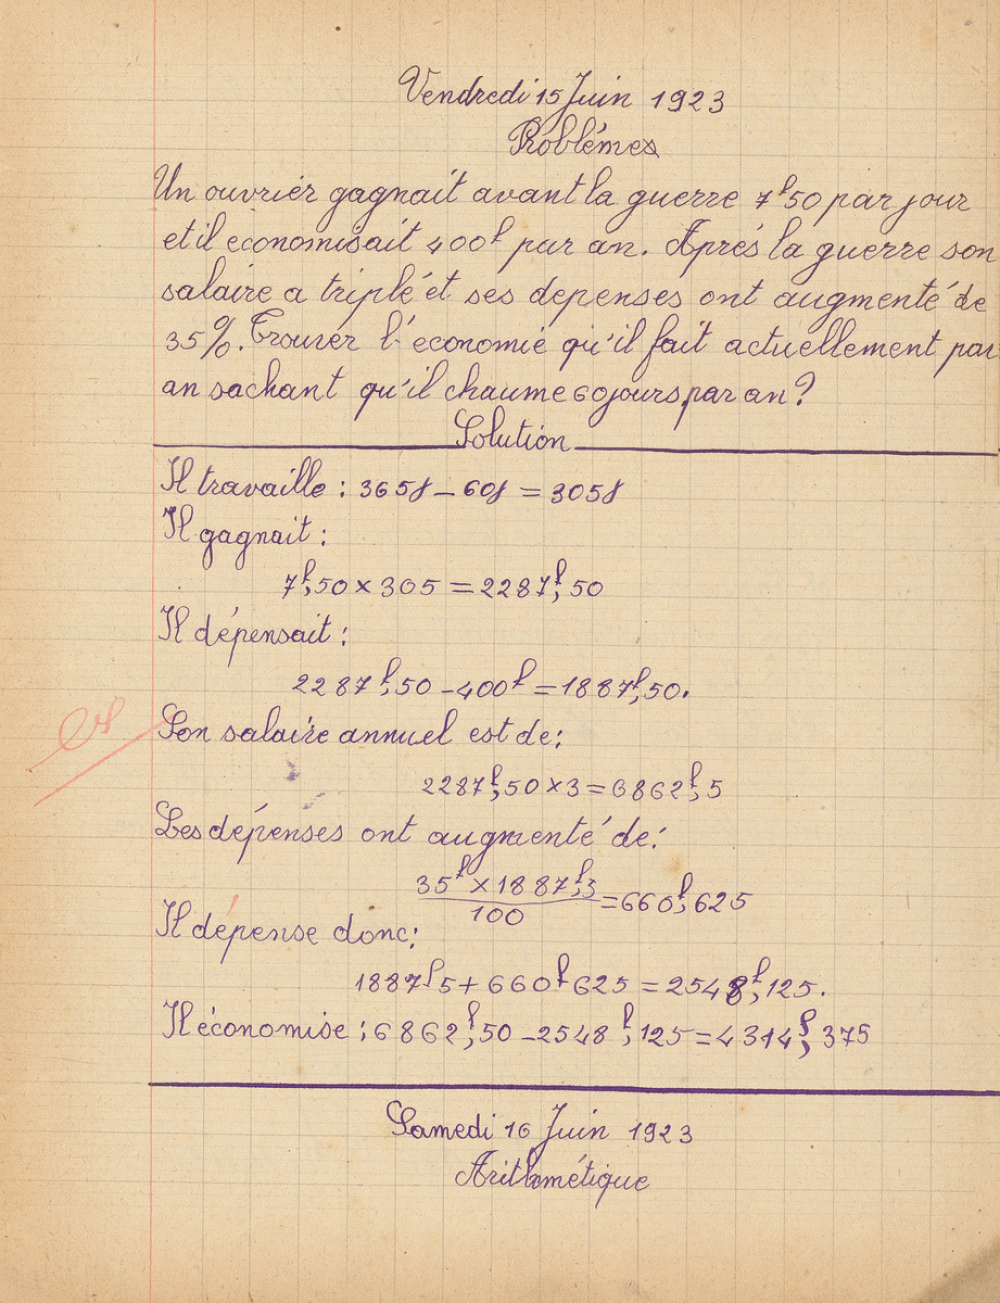 Vendredi 15 Juin 1923
Problèmes
Un ouvrier gagnait avant la guerre 7f50 par jour
et il economisait 400f par an. Après la guerre son
salaire a triplé et ses depenses ont augmenté de
35%. Trouver l'économie qu'il fait actuellement par
an sachant qu'il chaume 60 jours par an?
Solution
Il travaille : 365j - 60j = 305j
Il gagnait :
7f,50 x 305 = 2287f,50
Il dépensait :
2287f,50 - 400f = 1887f,50.
Son salaire annuel est de :
2287f,50 x 3 = 6862f,5
Les dépenses ont augmenté de :
35f x 1887f,5 = 660f,625
100
Il dépense donc :
1887f5 + 660f625 = 2548f,125.
Il économise : 6862f,50 - 2548f,125 = 4314f,375
Samedi 16 Juin 1923
Arithmétique